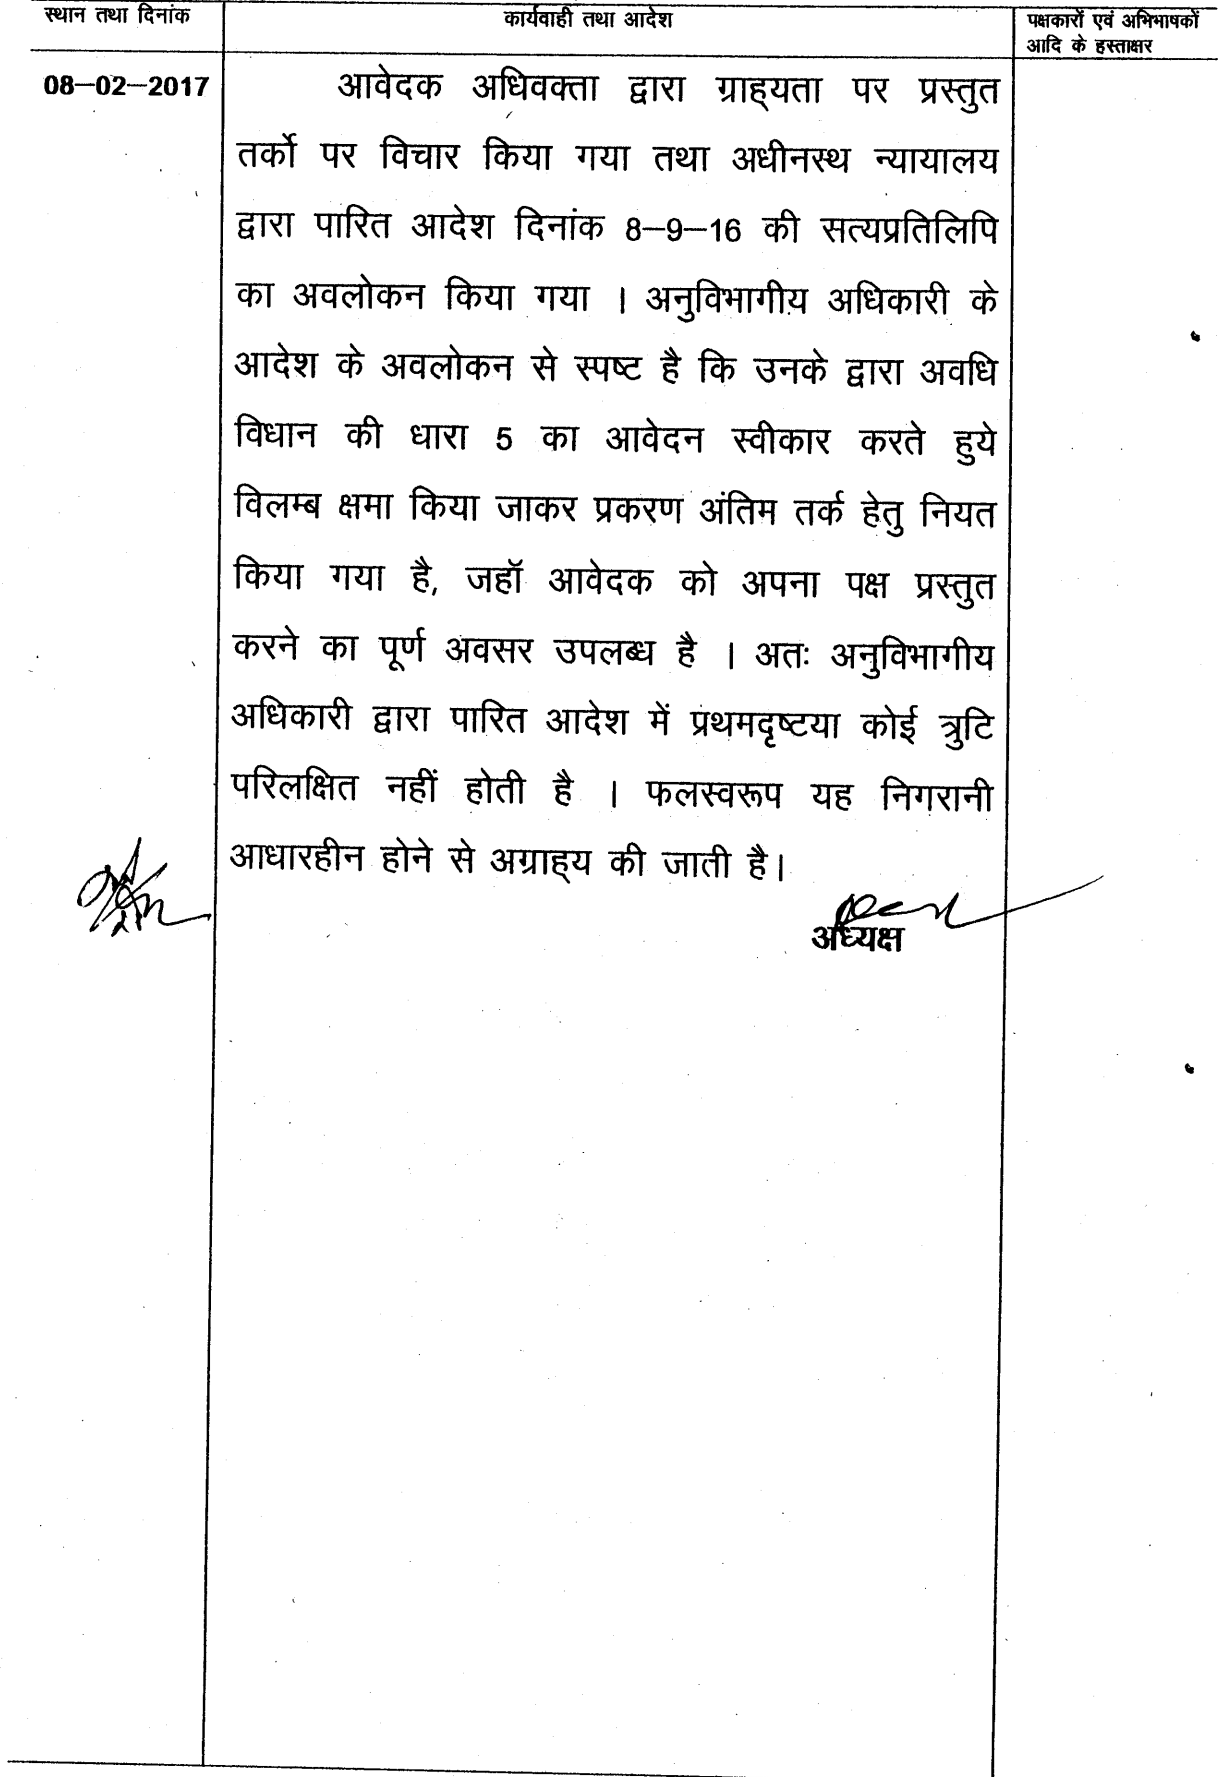 स्थान तथा दिनांक
कार्यवाही तथा आदेश
पक्षकारों एवं अभिभाषकों
आदि के हस्ताक्षर
08–02–2017
आवेदक अधिवक्ता द्वारा ग्राह्यता पर प्रस्तुत
तर्को पर विचार किया गया तथा अधीनस्थ न्यायालय
द्वारा पारित आदेश दिनांक 8–9–16 की सत्यप्रतिलिपि
का अवलोकन किया गया । अनुविभागीय अधिकारी के
आदेश के अवलोकन से स्पष्ट है कि उनके द्वारा अवधि
विधान की धारा 5 का आवेदन स्वीकार करते हुये
विलम्ब क्षमा किया जाकर प्रकरण अंतिम तर्क हेतु नियत
किया गया है, जहॉ आवेदक को अपना पक्ष प्रस्तुत
करने का पूर्ण अवसर उपलब्ध है । अतः अनुविभागीय
अधिकारी द्वारा पारित आदेश में प्रथमदृष्टया कोई त्रुटि
परिलक्षित नहीं होती है । फलस्वरूप यह निगरानी
आधारहीन होने से अग्राह्य की जाती है।
अध्यक्ष